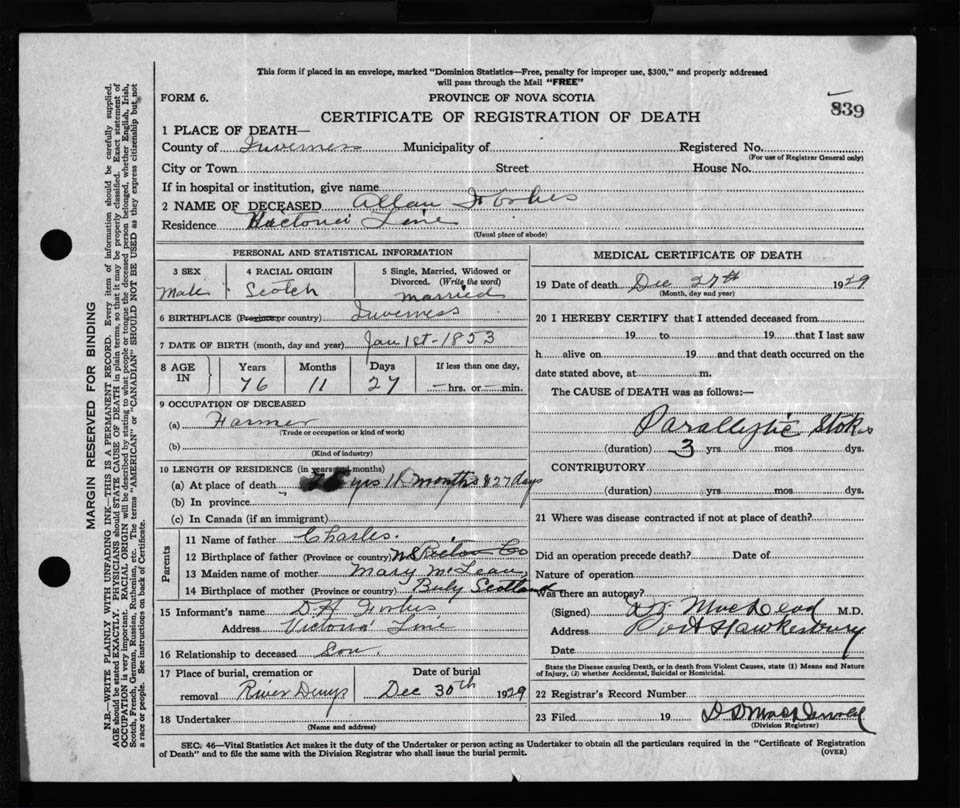 This form if placed in an envelope, marked "Dominion Statistics—Free, penalty for improper use, $300," and properly addressed
will pass through the Mail "FREE"
FORM 6.
PROVINCE OF NOVA SCOTIA
839
CERTIFICATE OF REGISTRATION OF DEATH
1 PLACE OF DEATH—
County of Inverness Municipality of Registered No.
(For use of Registrar General only)
City or Town Street House No.
If in hospital or institution, give name
2 NAME OF DECEASED Allan Forbes
Residence Line
(Usual place of abode)
PERSONAL AND STATISTICAL INFORMATION
3 SEX 4 RACIAL ORIGIN 5 Single, Married, Widowed or
Divorced. (Write the word)
Male Scotch married
6 BIRTHPLACE (Province or country) Inverness
7 DATE OF BIRTH (month, day and year) Jan 1st - 1853
8 AGE IN Years Months Days If less than one day,
76 11 27 — hrs. or — min.
9 OCCUPATION OF DECEASED
(a) Farmer
(Trade or occupation or kind of work)
(b)
(Kind of industry)
10 LENGTH OF RESIDENCE (in years and months)
(a) At place of death yrs months & 27 days
(b) In province
(c) In Canada (if an immigrant)
Parents
11 Name of father Charles.
12 Birthplace of father (Province or country) N.S Pictou Co
13 Maiden name of mother Mary McLean
14 Birthplace of mother (Province or country)
15 Informant's name D A Forbes
Address Victoria Line
16 Relationship to deceased Son.
17 Place of burial, cremation or Date of burial
removal River Denys Dec 30th 1929
18 Undertaker
(Name and address)
MEDICAL CERTIFICATE OF DEATH
19 Date of death Dec 27th 1929
(Month, day and year)
20 I HEREBY CERTIFY that I attended deceased from
19 to 19 that I last saw
h alive on 19 and that death occurred on the
date stated above, at m.
The CAUSE OF DEATH was as follows:—
Parallytic Stoke
(duration) 3 yrs. mos. dys.
CONTRIBUTORY
(duration) yrs. mos. dys.
21 Where was disease contracted if not at place of death?
Did an operation precede death? Date of
Nature of operation
Was there an autopsy?
(Signed) MacLeod M.D.
Address Port Hawkesbury
Date
State the Disease causing Death, or in death from Violent Causes, state (1) Means and Nature
of Injury, (2) whether Accidental, Suicidal or Homicidal.
22 Registrar's Record Number
23 Filed 19
(Division Registrar)
SEC. 46—Vital Statistics Act makes it the duty of the Undertaker or person acting as Undertaker to obtain all the particulars required in the "Certificate of Registration
of Death" and to file the same with the Division Registrar who shall issue the burial permit.
(OVER)
MARGIN RESERVED FOR BINDING
N.B.—WRITE PLAINLY WITH UNFADING INK—THIS IS A PERMANENT RECORD. Every item of information should be carefully supplied.
AGE should be stated EXACTLY. PHYSICIANS should STATE CAUSE OF DEATH in plain terms, so that it may be properly classified. Exact statement of
OCCUPATION is very important. RACIAL ORIGIN will be described by stating to what people or tongue the deceased person belonged, whether English, Irish,
Scotch, French, German, Russian, Ruthenian, etc. The terms "AMERICAN" or "CANADIAN" SHOULD NOT BE USED as they express citizenship but not
a race or people. See instructions on back of Certificate.